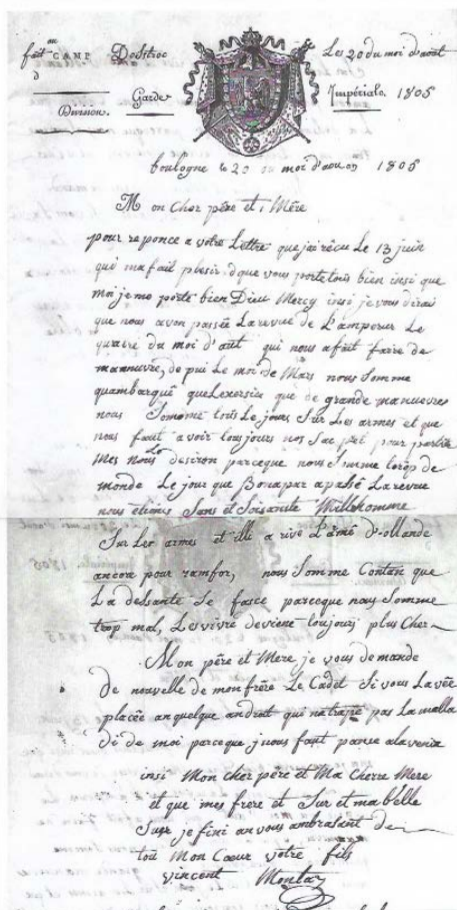 fait au CAMP Dostroc Les 20 du moi d'aout
d
Division. Garde Impériale. 1805
boulogne le 20 du moi d'aou 1805
Mon cher père et Mère
pour reponce a votre Lettre que jai récu Le 13 juin
qui ma fait plesir. d que vous porte tous bien insi que
moi je me porte bien Dieu Mercy insi je vous dirai
que nous avon passée La revue de L'amperur Le
quatre du moi d'aut qui nous a fait faire de
manuvre, de pui Le moi de Mars nous Somme
quambarqué quelexersise que de grande manuevres
nous Somme tous Le jours Sur Les armes et que
nous faut avoir tousjours nos Sac pret pour partir
Mes nous Lo desiron parceque nous Somme trop de
monde Le jour que Bonapar a passé La revue
nous etions Sans et Soisante Millehomme
Sur Les armes et illi a rivé L'amé d'ollande
ancora pour ramfor, nous Somme Contan que
La dessante Se fasce parceque nous Somme
trop mal, Les vivre devienne toujour plus Cher
Mon père et Mere je vous demande
de nouvelle de mon frère Le Cadet Si vous Lavée
placée an quelque androit qui natrape pas La malla
di de moi parceque j nous faut panse alavenir
insi Mon cher père et Ma Cherre Mere
et que mes frere et Sur et ma b'elle
Sur je fini an vous ambrasant de
tout Mon Cœur votre fils
vincent Montaz